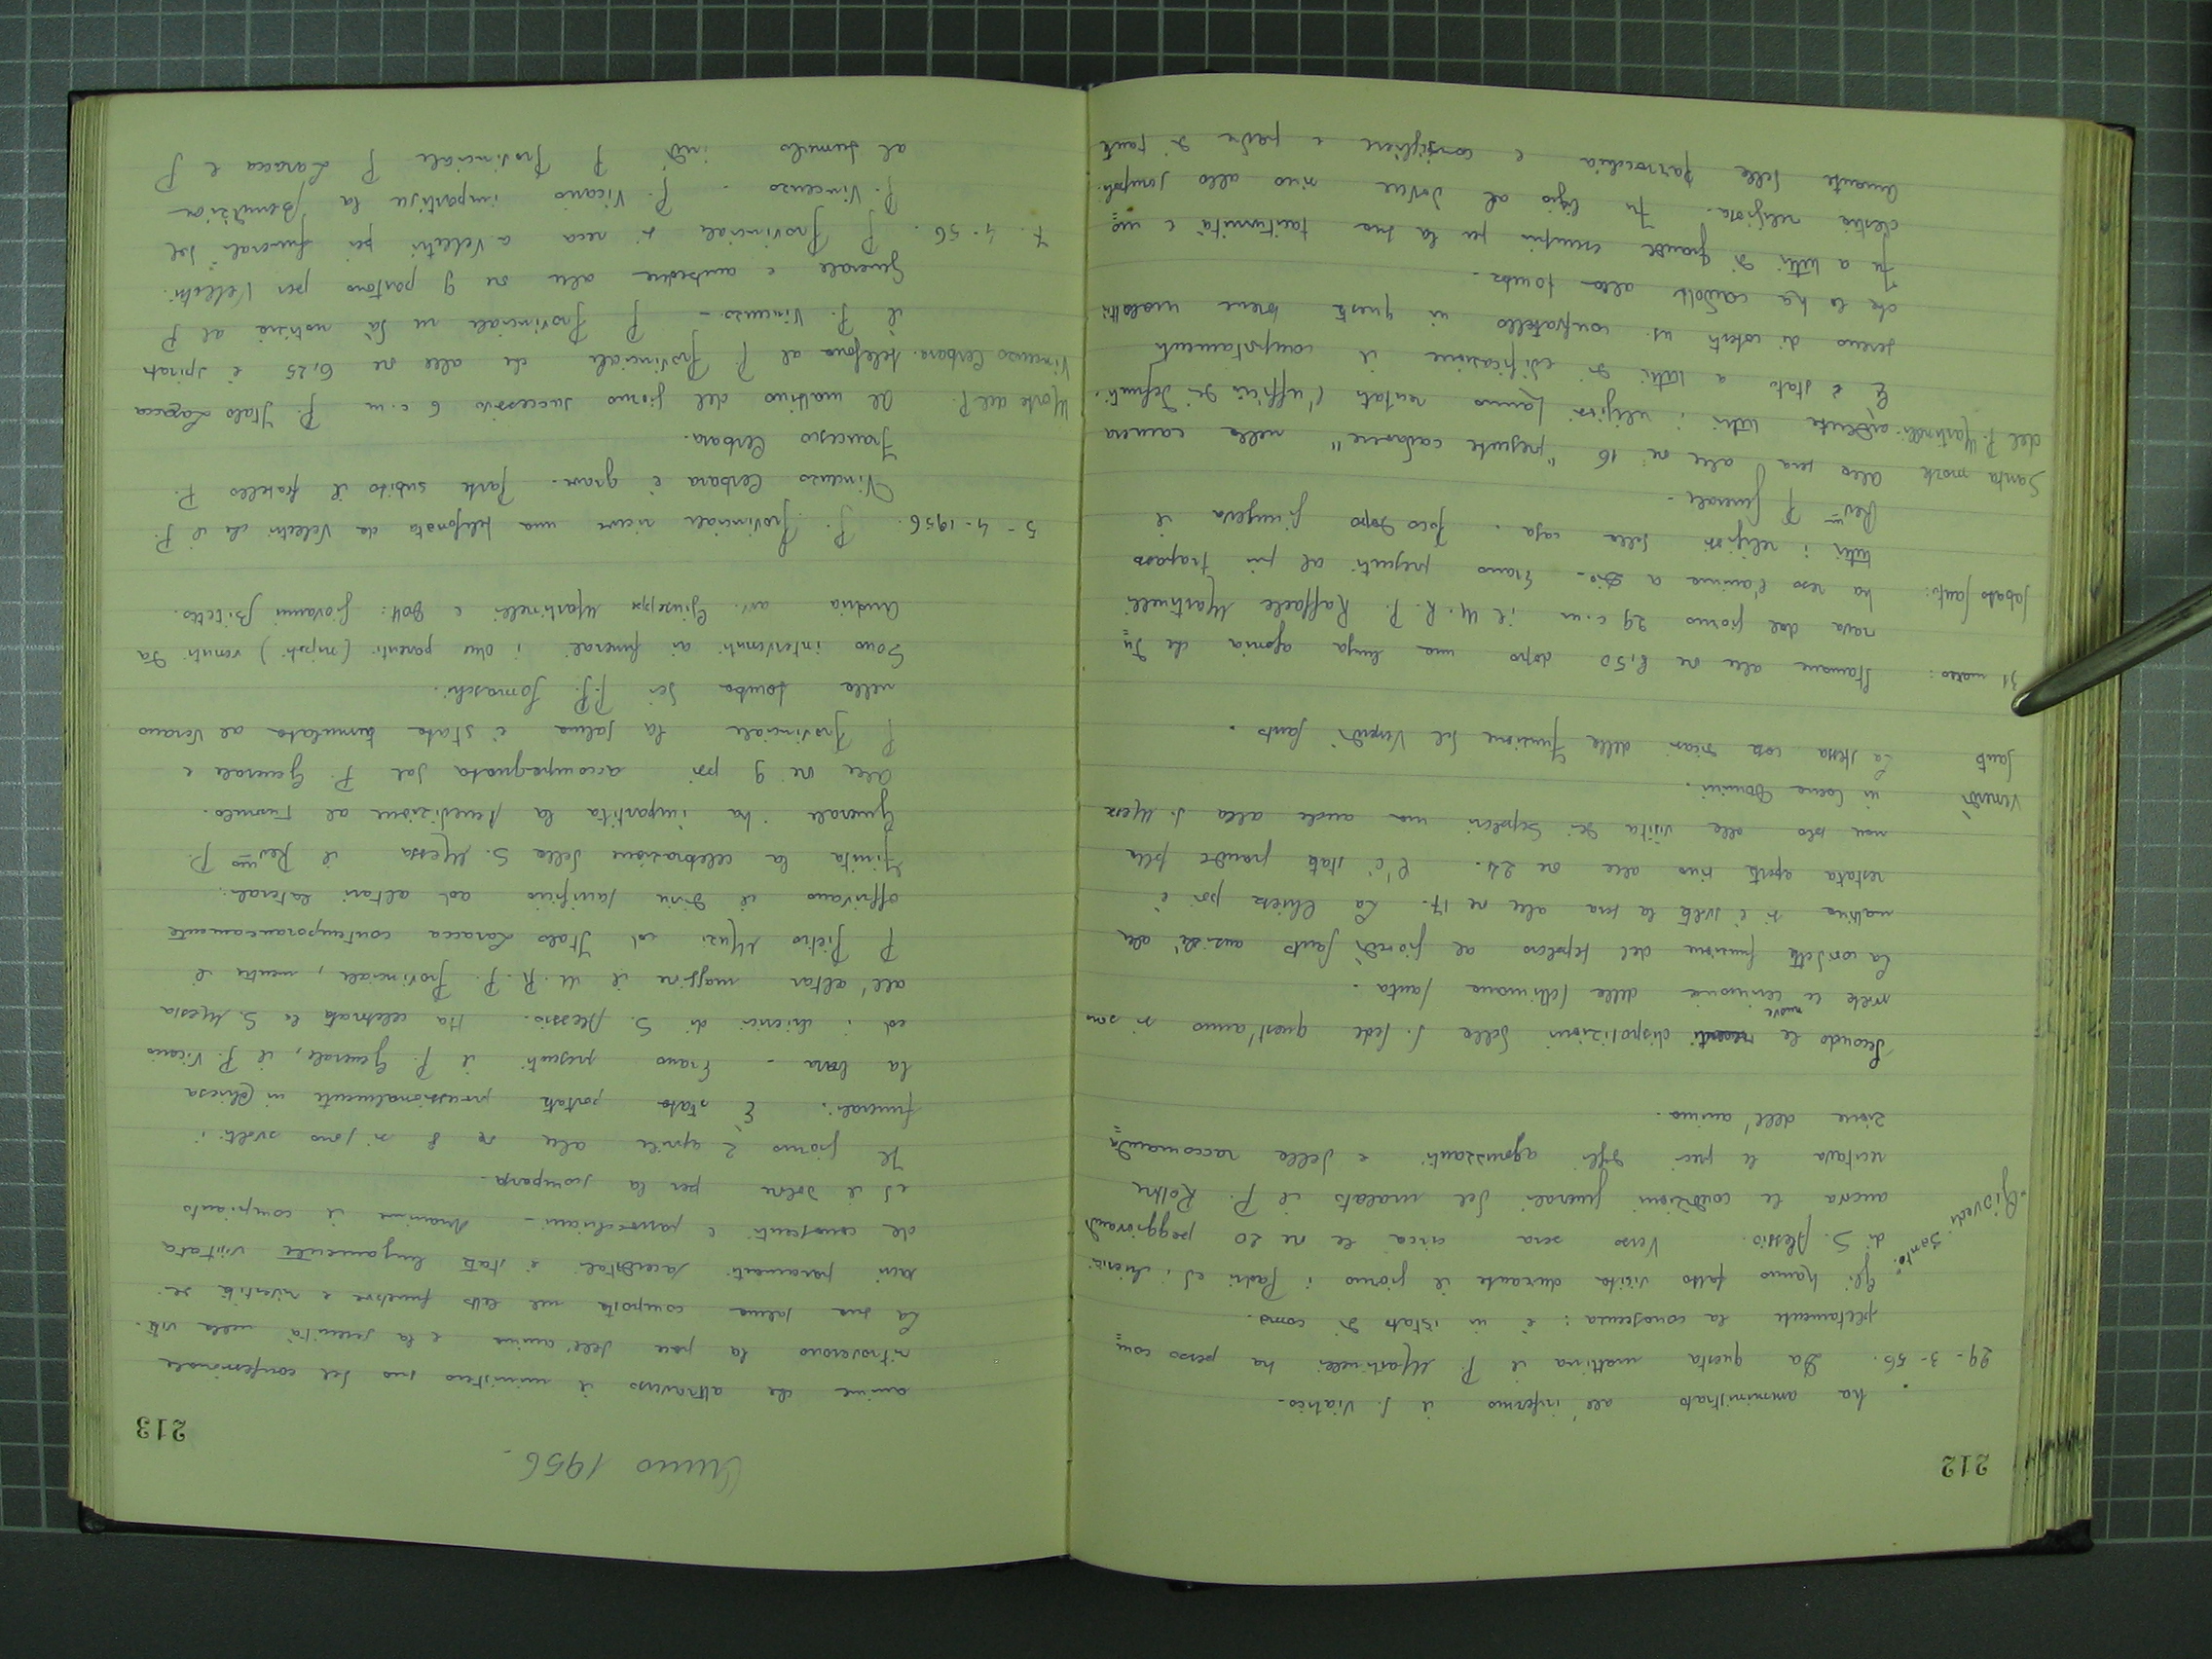 212
ha amministrato all'infermo il S. Viatico.
29-3-56. Da questa mattina il P. Martinelli ha perso com=
pletamente la conoscenza: è in istato di coma.
"Giovedì Santo" Gli hanno fatto visita durante il giorno i Padri ed i chierici
di S. Alessio. Verso sera circa le re 20 peggiorand
ancora le condizioni generali del malato il P. Rettore
recitava le preci degli agonizzanti e della raccomanda=
zione dell'anima.
Secondo le recenti nuove disposizioni della S. Sede quest'anno si sono
svolte le cerimonie della settimana santa.
La cosidetta funzione del sepolcro al giovedì santo anziché alla
mattina si è svolta la sera alle re 17. La Chiesa poi è
restata aperta sino alle ore 24. C'è stata grande folla
non solo alla visita dei Sepolcri ma anche alla S. Messa
in Coena Domini.
Venerdì Santo La stessa cosa dicasi della funzione del Venerdì Santo.
31 marzo: Stamane alle re 8,50 dopo una lunga agonia che du=
rava dal giorno 29 c.m. il M. R. P. Raffaele Martinelli
sabato santo: ha reso l'anima a Dio. Erano presenti al pio trapasso
tutti i religiosi della casa. Poco dopo giungeva il
Rev.mo P. Generale.
Santa morte alla sera alle re 16 "presente cadavere" nella camera
del P. Martinelli. ardente tutti i religiosi hanno recitato l'ufficio dei defunti.
È stato a tutti di edificazione il comportamento
sereno di cotesto ns. confratello in questa breve malattia
che lo ha condotto alla tomba.
Fu a tutti di grande esempio per la sua taciturnità e mo=
destia religiosa. Fu ligio al dovere sino allo scrupolo.
Amante della parrocchia e consigliere e padre di tante
Anno 1956.
213
anime che attraverso il ministero suo del confessionale
ritrovarono la pace dell'anima e la serenità nella vita.
La sua salma composta nel letto funebre e rivestita de
sacri paramenti sacerdotali è stata lungamente visitata
da conoscenti e parrocchiani. Unanime il compianto
ed il dolore per la scomparsa.
Il giorno 2 aprile alle re 8 si sono svolti i
funerali. È stata portata processionalmente in Chiesa
la bara - Erano presenti il P. Generale, il P. Vicario
ed i chierici di S. Alessio. Ha celebrato la S. Messa
all'altar maggiore il M. R. P. Provinciale, mentre il
P. Pietro Muzi ed Italo Laracca contemporaneamente
offrivano il divin sacrificio ad altari laterali.
Finita la celebrazione della S. Messa il Rev.mo P.
Generale ha impartita la benedizione al Tumulo.
Alle re 9 poi accompagnata dal P. Generale e
P. Provinciale la salma è stata tumulata al Verano
nella tomba dei P.P. Somaschi.
Sono intervenuti ai funerali i due parenti (nipoti) venuti da
Andria avv. Giuseppe Martinelli e Dott: Giovanni Bitetto.
5-4-1956. P. Provinciale riceve una telefonata da Velletri che il P.
Vincenzo Cerbara è grave. Parte subito il fratello P.
Francesco Cerbara.
Morte del P. Al mattino del giorno successivo 6 c.m P. Italo Laracca
Vincenzo Cerbara. telefona al P. Provinciale che alle re 6,25 è spirato
il P. Vincenzo - P. Provinciale ne dà notizia al P
Generale e ambedue alle re 9 partono per Velletri.
7-4-56. P. Provinciale si reca a Velletri pei funerali del
P. Vincenzo. P. Vicario impartisce la Benedizione
al tumulo indi P Provinciale P Laracca e P